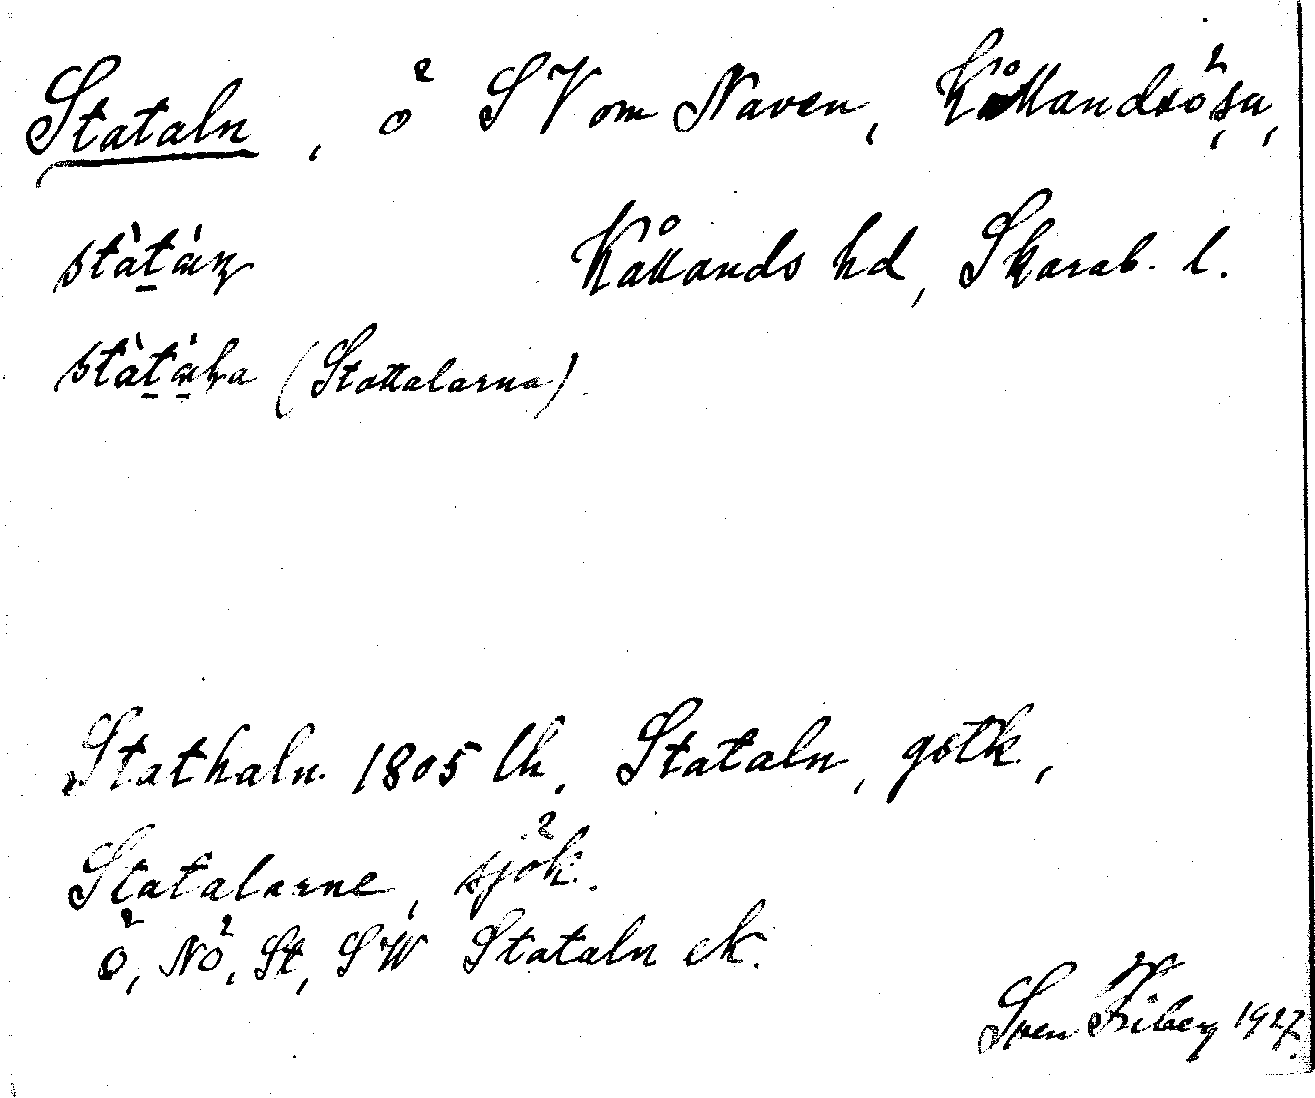 Stataln, ö SV om Naven, Kållandsö sn,
Kållands hd, Skarab. l.
(Stattalarna)
Stathaln 1805 lh, Stataln, gstk.,
Statalarne, sjök.
Ö, NÖ, St, SW Stataln ek.
Sven Friberg 1927.